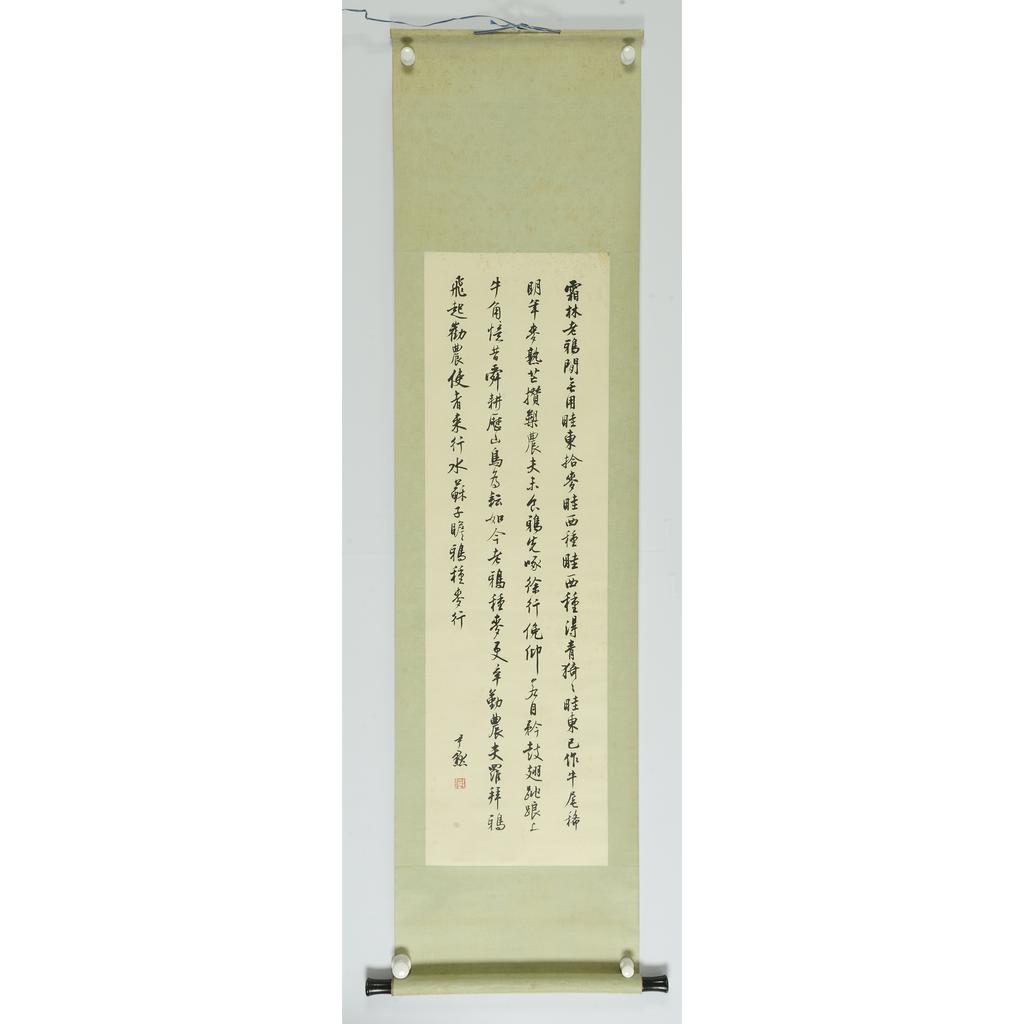 霜林老鴉閒無用畦東拾麥畦西種畦西種得青猗〻畦東已作牛尾稀
明年麥熟芒攢槊農夫未食鴉先啄徐行俛仰若自矜鼓翅跳踉上
牛角憶昔舜耕歷山鳥為耘如今老鴉種麥更辛勤農夫羅拜鴉
飛起勸農使者來行水蘇子瞻鴉種麥行
尹默